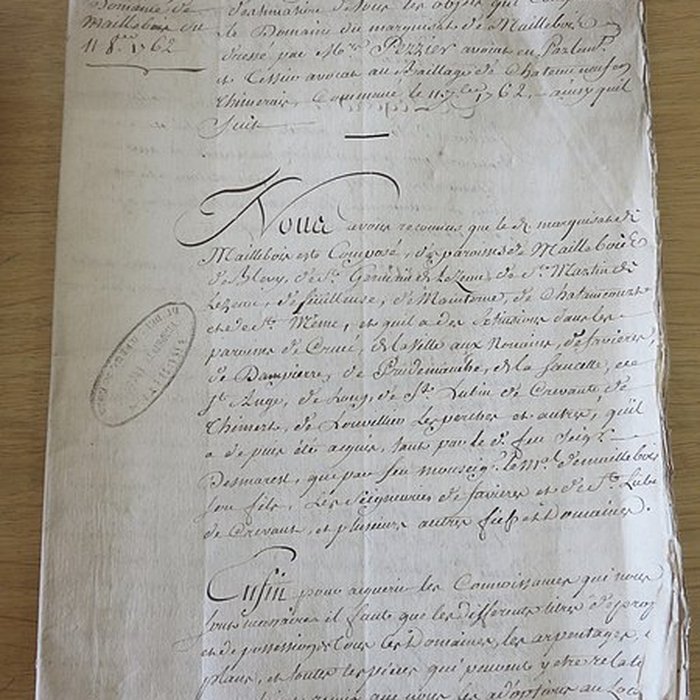 Domaine de
Maillebois du
11 8.bre 1762
d'estimation de tous les objets qui
le Domaine du marquisat de Maillebois
dressé par Mrs avocat en Parlemt
et Tessier avocat au Bailliage de Chateauneuf en
Thimerais, Commencé le 1762, ainsy quil
Suit
Nous avons reconnus que le d. marquisat de
Maillebois est Composé, des paroisses de Maillebois
de Blevy, de St. Germain de Lezeau, de St. Martin de
Lezeau, de feuilleuse, de Mainterne, de Chataincourt
et de St. Meme, et quil a des Extensions dans les
paroisses de Crucé, de la Ville aux Nonains, de favieres,
de Dampierre, de Prudemanche, de la Saucelle, de
St. Ange, de Lons, de St. Lubin de Crevant de
Thimert, de Louvillier Les perches et autres, qu'il
a depuis été acquis, tant par le d. feu Seigr.
Desmarest, que par feu monseigr. le Mal. de maillebois
son fils, Les Seigneuries de favieres et de St. Lubin
de Crevant, et plusieurs autres fiefs et Domaines.
Enfin pour acquerir les Connoissances qui nous
sont necessaires il faute que les differents titres de prop
et de possessions de tous les Domaines, les arpentages,
plans, et toutes les pieces qui peuvent y etre relati
que nous les